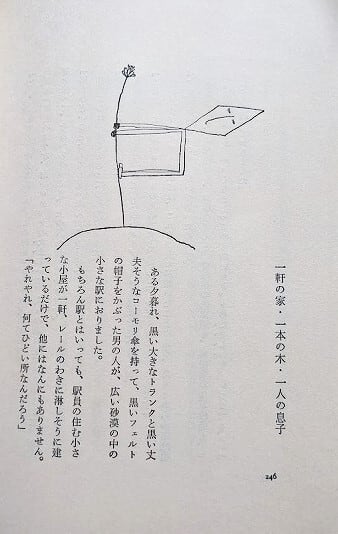 一軒の家・一本の木・一人の息子
ある夕暮れ、黒い大きなトランクと黒い丈
夫そうなコーモリ傘を持って、黒いフェルト
の帽子をかぶった男の人が、広い砂漠の中の
小さな駅におりました。
もちろん駅とはいっても、駅員の住む小さ
な小屋が一軒、レールのわきに淋しそうに建
っているだけで、他にはなんにもありません。
「やれやれ、何てひどい所なんだろう」
246